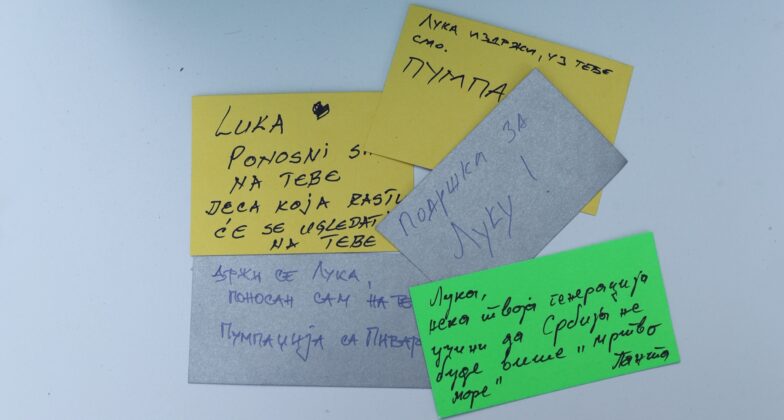 ЛУКА ИЗДРЖИ, УЗ ТЕБЕ
СМО.
ПУМПА
LUKA
PONOSNI S
NA TEBE
DECA KOJA RASTU
ĆE SE UGLEDATI
NA TEBE
ПОДРШКА ЗА
ЛУКУ !
ДРЖИ СЕ ЛУКА,
ПОНОСАН САМ НА ТЕ
ПУМПАЏИЈА СА ПИВАР
Лука,
нека твоја генерација
учини да Србија не
буде више "мртво
море"